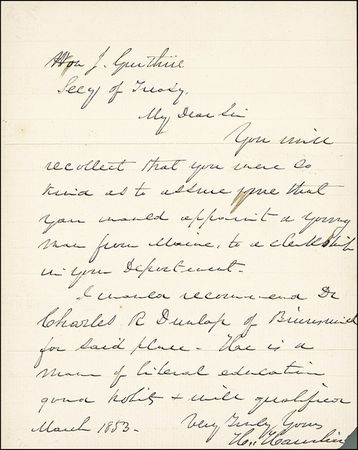 Hon J. Guthrie
Secy of Treasy.
My Dear Sir
You will
recollect that you were so
kind as to assure me that
you would appoint a young
man from Maine, to a clerkship
in your Department.
I would recommend Dr
Charles R Dunlap of Brunswick
for said place. He is a
man of liberal education
good habits & well qualified
Very Truly Yours
March 1853.
H. Hamlin